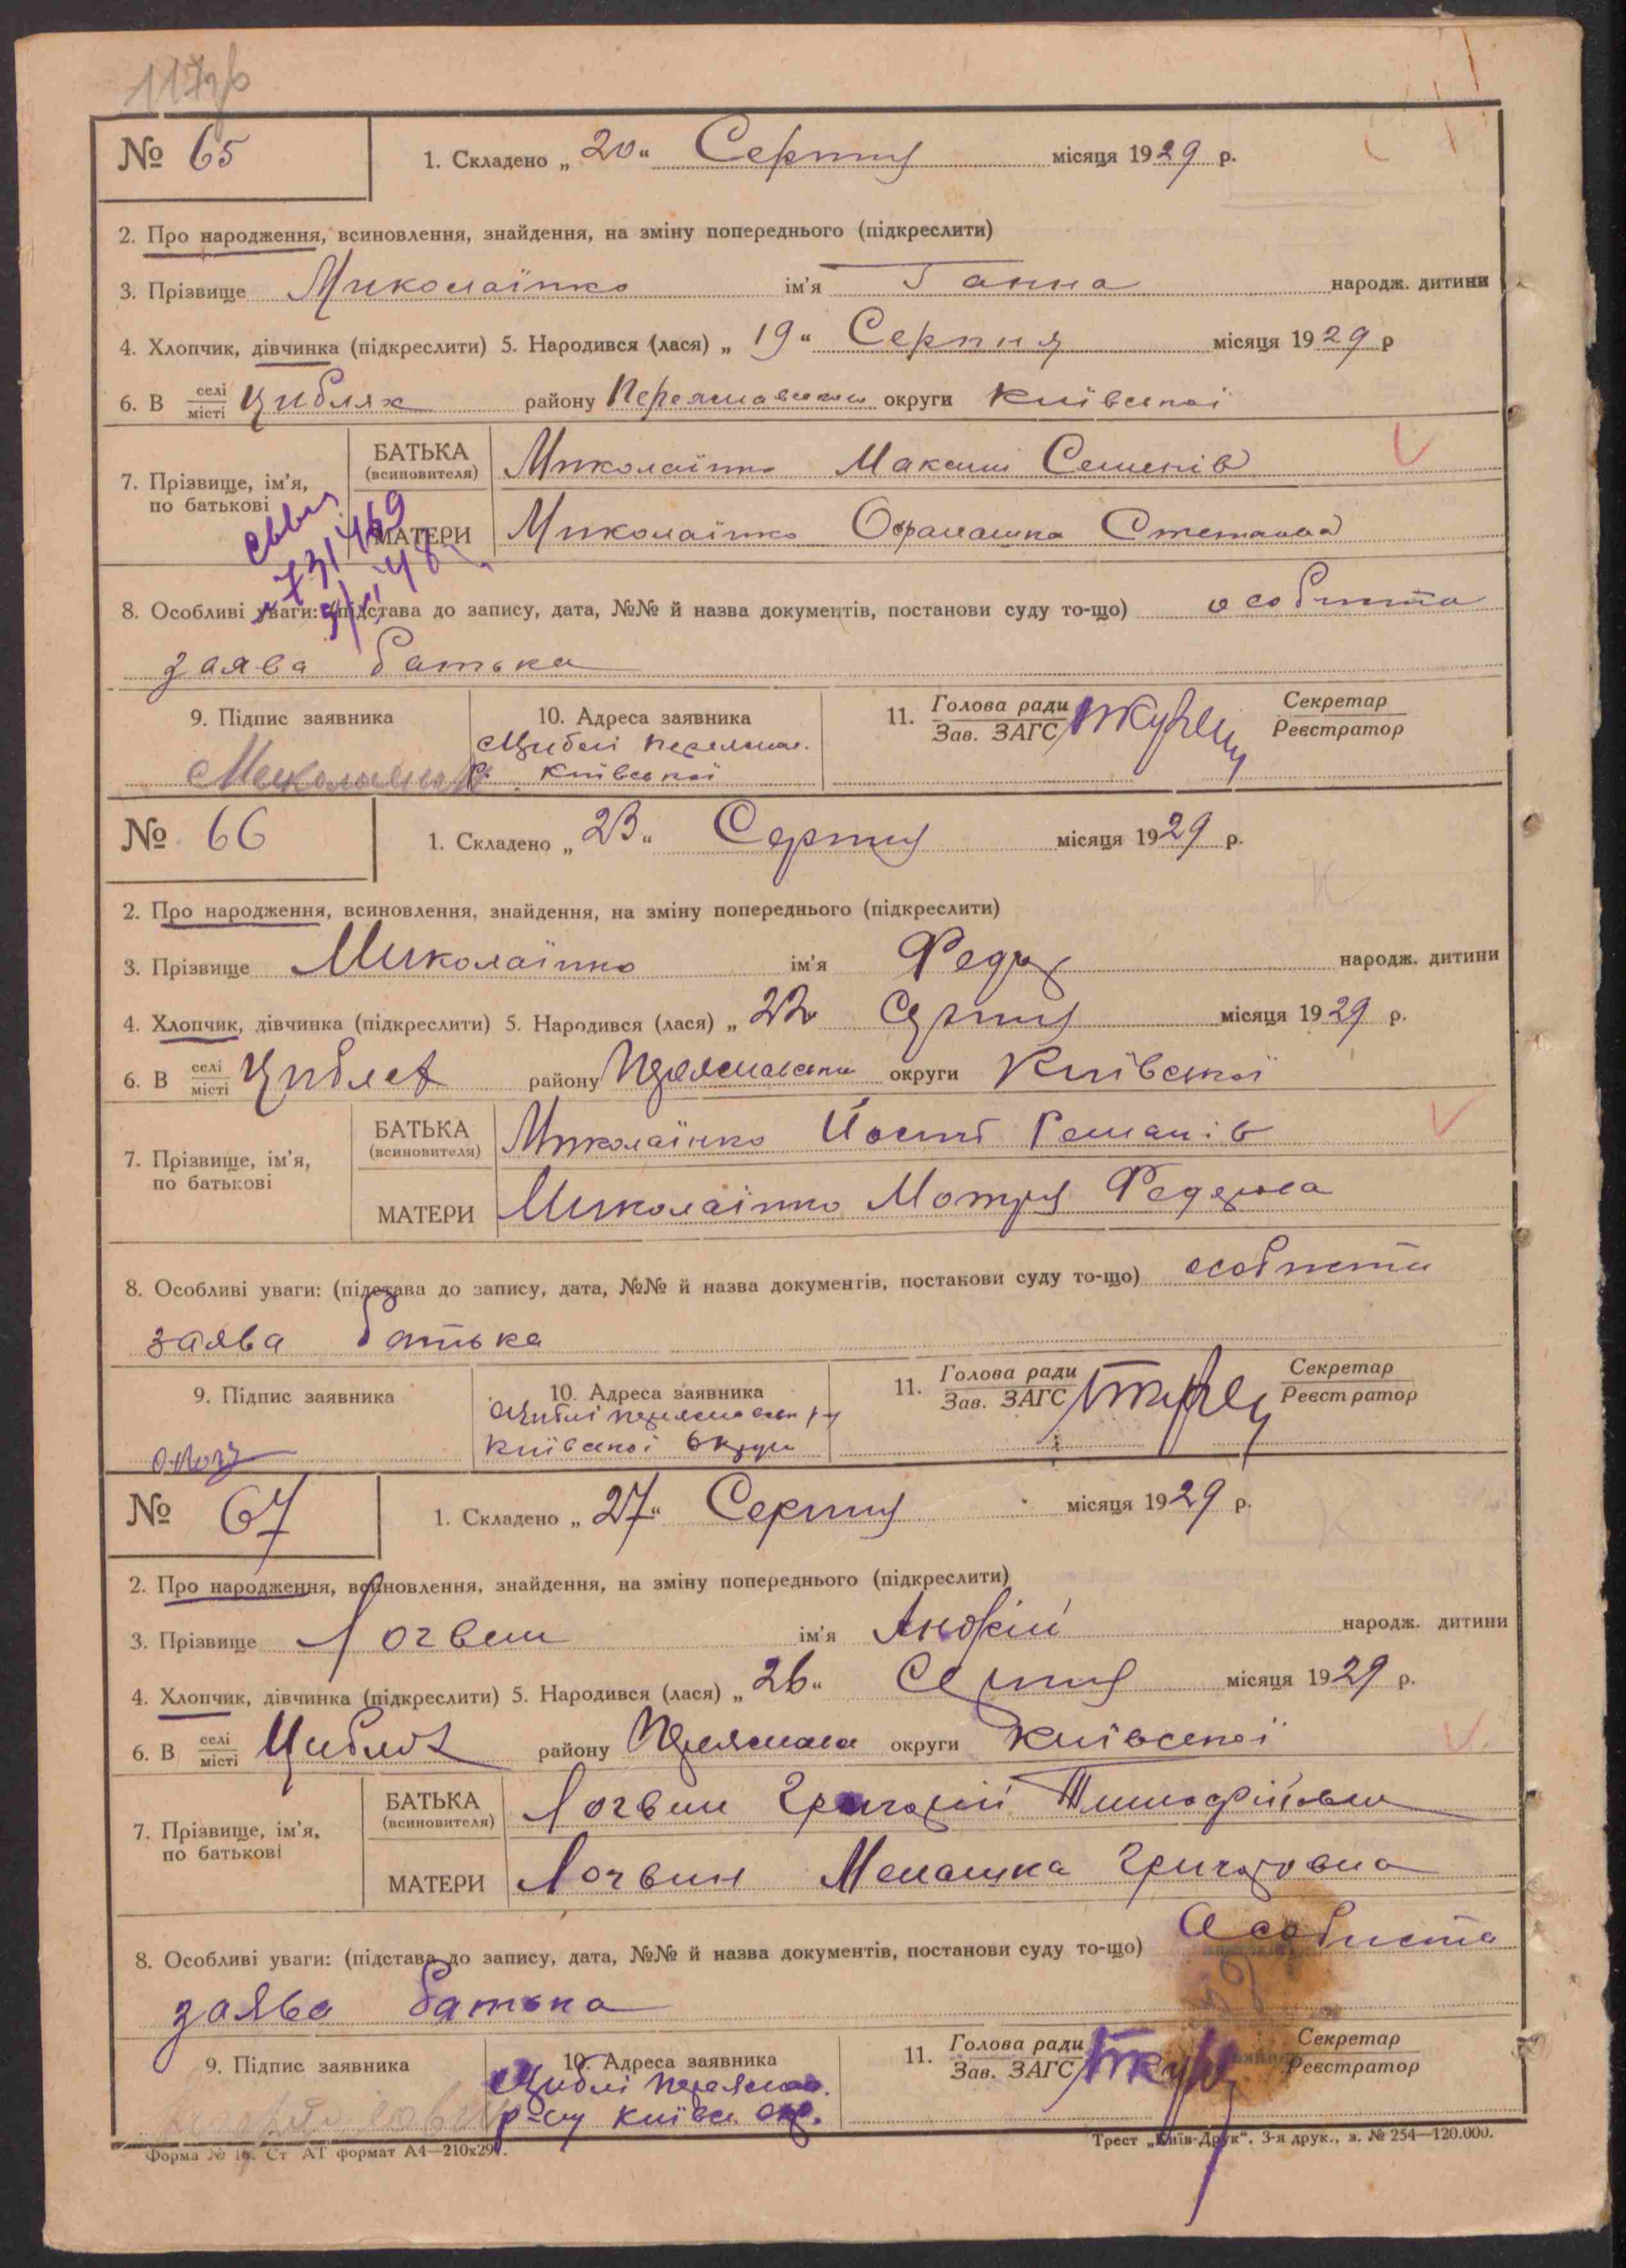 № 65
1. Складено „ 20 “ Серпня місяця 1929 р.
2. Про народження, всиновлення, знайдення, на зміну попереднього (підкреслити)
3. Прізвище Миколаїнко ім'я Ганна народж. дитини
4. Хлопчик, дівчинка (підкреслити) 5. Народився (лася) „ 19 “ Серпня місяця 1929 р
6. В селі/місті Циблях району Переяславськ округи Київської
7. Прізвище, ім'я, по батькові
БАТЬКА (всиновителя) Миколаїнко Максим Семенів
МАТЕРИ Миколаїнко Степанова
731469
8. Особливі уваги: (підстава до запису, дата, №№ й назва документів, постанови суду то-що) особиста
заява батька
9. Підпис заявника
10. Адреса заявника
Циблі Переяслав.
р. Київської
11. Голова ради/Зав. ЗАГС Секретар/Реєстратор
№ 66
1. Складено „ 23 “ Серпня місяця 1929 р.
2. Про народження, всиновлення, знайдення, на зміну попереднього (підкреслити)
3. Прізвище Миколаїнко ім'я Федір народж. дитини
4. Хлопчик, дівчинка (підкреслити) 5. Народився (лася) „ 22 Серпня місяця 1929 р.
6. В селі/місті Циблях району Переяславськ округи Київської
7. Прізвище, ім'я, по батькові
БАТЬКА (всиновителя) Миколаїнко Йосип Романів
МАТЕРИ Миколаїнко Мотря Федорова
8. Особливі уваги: (підстава до запису, дата, №№ й назва документів, постанови суду то-що) особиста
заява батька
9. Підпис заявника
10. Адреса заявника
Циблі Переяславськ р-н
Київської округи
11. Голова ради/Зав. ЗАГС Секретар/Реєстратор
№ 67
1. Складено „ 27 “ Серпня місяця 1929 р.
2. Про народження, всиновлення, знайдення, на зміну попереднього (підкреслити)
3. Прізвище Логвин ім'я Андрій народж. дитини
4. Хлопчик, дівчинка (підкреслити) 5. Народився (лася) „ 26 “ Серпня місяця 1929 р.
6. В селі/місті Циблях району Переяслав округи Київської
7. Прізвище, ім'я, по батькові
БАТЬКА (всиновителя) Логвин Григорій Тимофійович
МАТЕРИ Логвин Мелашка Григоровна
8. Особливі уваги: (підстава до запису, дата, №№ й назва документів, постанови суду то-що) Особиста
заява батька
9. Підпис заявника
10. Адреса заявника
Циблі Переяслав.
р-ну Київськ. окр.
11. Голова ради/Зав. ЗАГС Секретар/Реєстратор
Форма № 16. Ст АТ формат А4—210х297.
Трест „Київ-Друк“. 3-я друк., з. № 254—120.000.